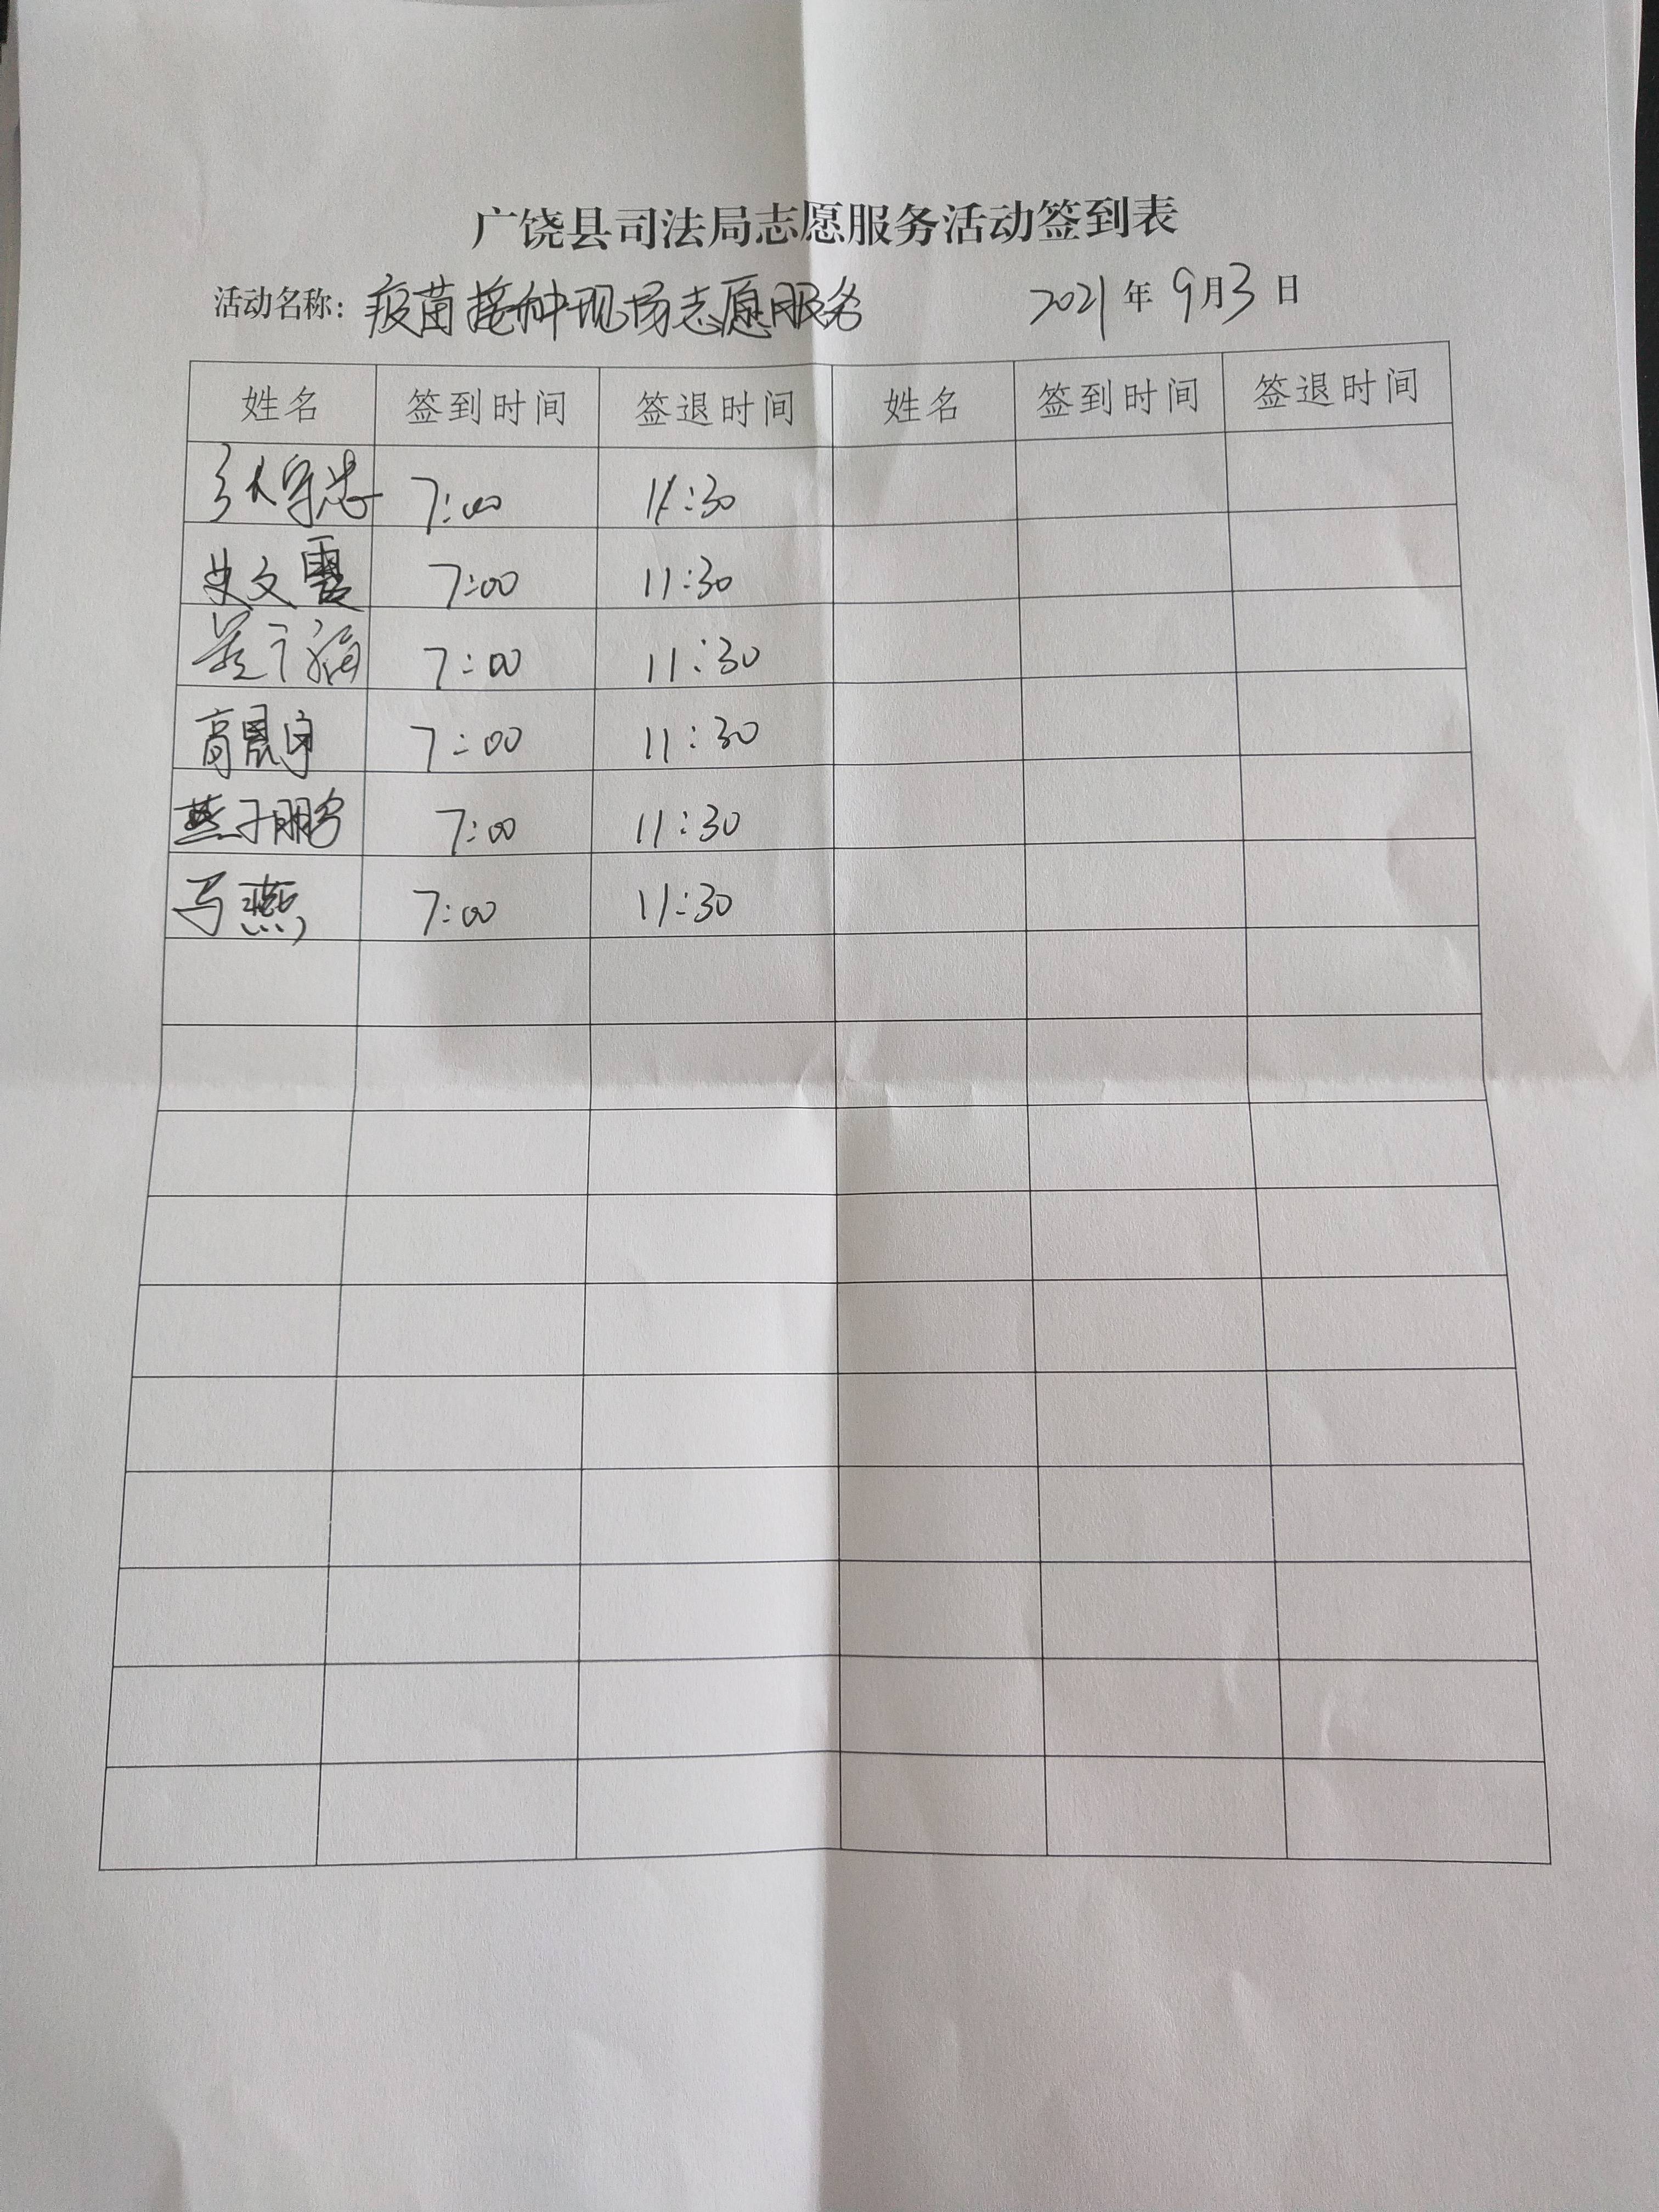 广饶县司法局志愿服务活动签到表
活动名称：疫苗接种现场志愿服务 2021年9月3日
姓名 签到时间 签退时间 姓名 签到时间 签退时间
张守忠 7:00 11:30
史文霞 7:00 11:30
7:00 11:30
高晨宇 7:00 11:30
燕子鹏 7:00 11:30
马燕 7:00 11:30